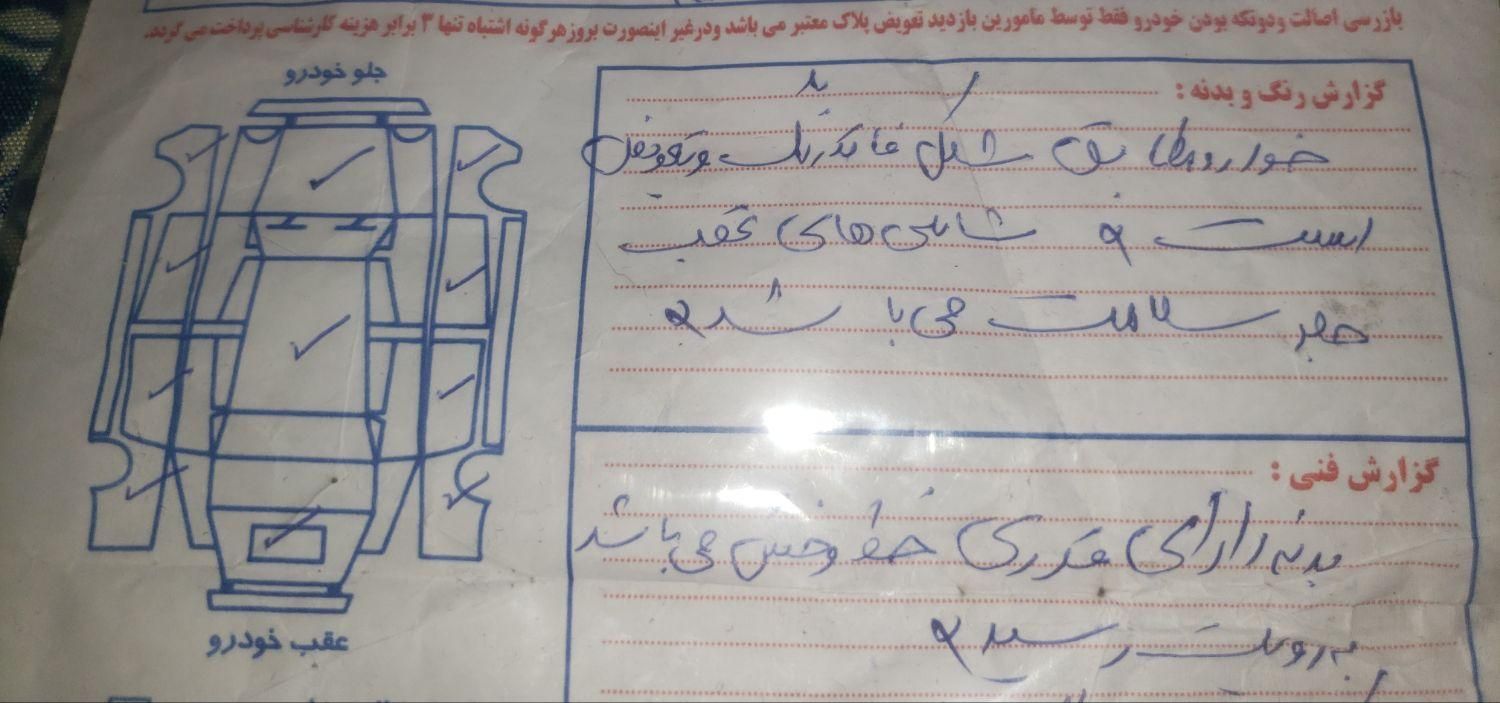 بازرسی اصالت ودوتکه بودن خودرو فقط توسط مامورین بازدید تعویض پلاک معتبر می باشد ودرغیر اینصورت بروزهرگونه اشتباه تنها ۳ برابر هزینه کارشناسی پرداخت می گردد.
جلو خودرو
گزارش رنگ و بدنه :
خودرو مطابق شکل فاقد رنگ و تعویض
است و شاسی های عقب
جلو سلامت می باشد
گزارش فنی :
بدنه دارای قدری خط و خش می باشد
به رویت رسید
عقب خودرو